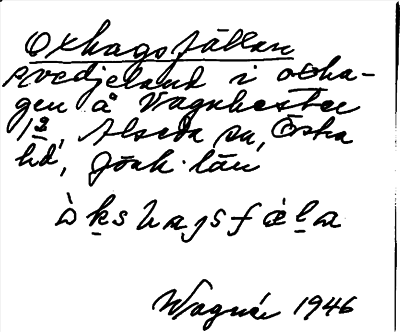 Oxhagsfällan
svedjeland i oxha-
gen å Vagnhester
1 3, Alseda sn, Östra
hd, Jönk. län
òkshagsfæla
Wagnér 1946